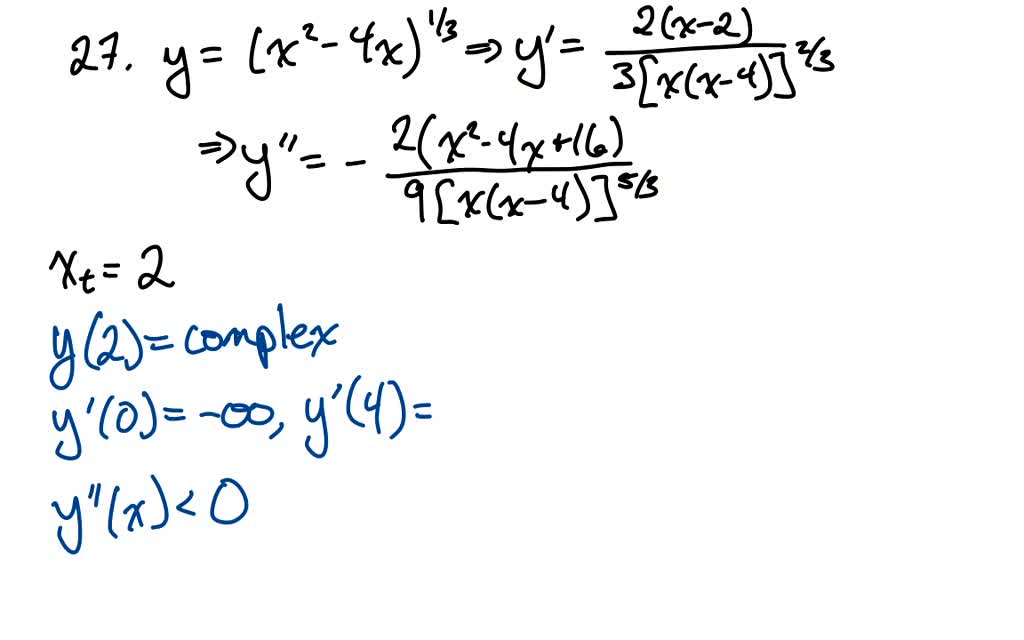 27. y = (x² - 4x)^{1/3} ⇒ y' = \frac{2(x-2)}{3[x(x-4)]^{2/3}}
⇒ y'' = - \frac{2(x² - 4x + 16)}{9[x(x-4)]^{5/3}}
x_t = 2
y(2) = complex
y'(0) = -∞, y'(4) =
y''(x) < 0